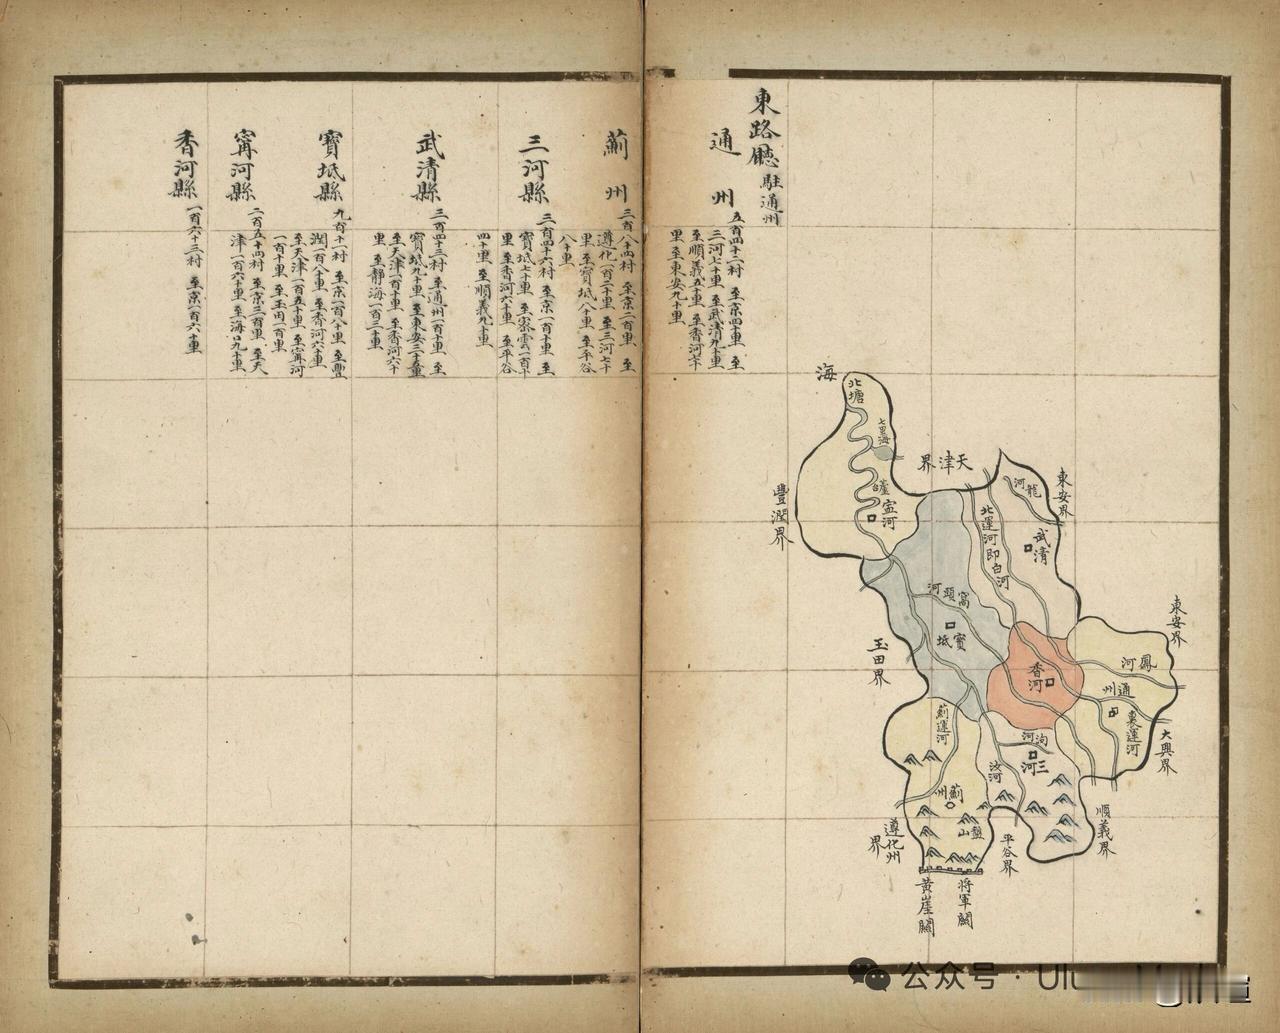 東路廳駐通州
通州
五百四十二村 至京四十里 至
三河七十里 至武清九十里
至順義五十里 至香河七十
里 至東安九十里
薊州
三百八十四村 至京二百里 至
遵化一百二十里 至三河七十
里 至寶坻八十里 至平谷
八十里
三河縣
三百四十六村 至京一百十里 至
寶坻七十里 至密雲一百十
里 至香河六十里 至平谷
四十里 至順義九十里
武清縣
三百四十三村 至通州一百十里 至
寶坻九十里 至東安三十五里
至天津一百十里 至香河六十
里 至靜海一百三十里
寶坻縣
九百十一村 至京一百八十里 至豐
潤一百八十里 至香河六十里
至天津一百五十里 至甯河
一百十里 至玉田一百里
甯河縣
二百五十四村 至京三百里 至天
津一百六十里 至海口九十里
香河縣
一百六十三村 至京一百六十里
海
北塘
七里海
天津界
蘆台
甯河
豐潤界
東安界
龍河
武清
北運河即白河
窩頭河
寶坻
玉田界
東安界
鳳河
通州
裏運河
大興界
香河
薊運河
泃河
三河
汝河
薊州
盤山
順義界
平谷界
遵化州界
黃崖關
將軍關
公众号 ·